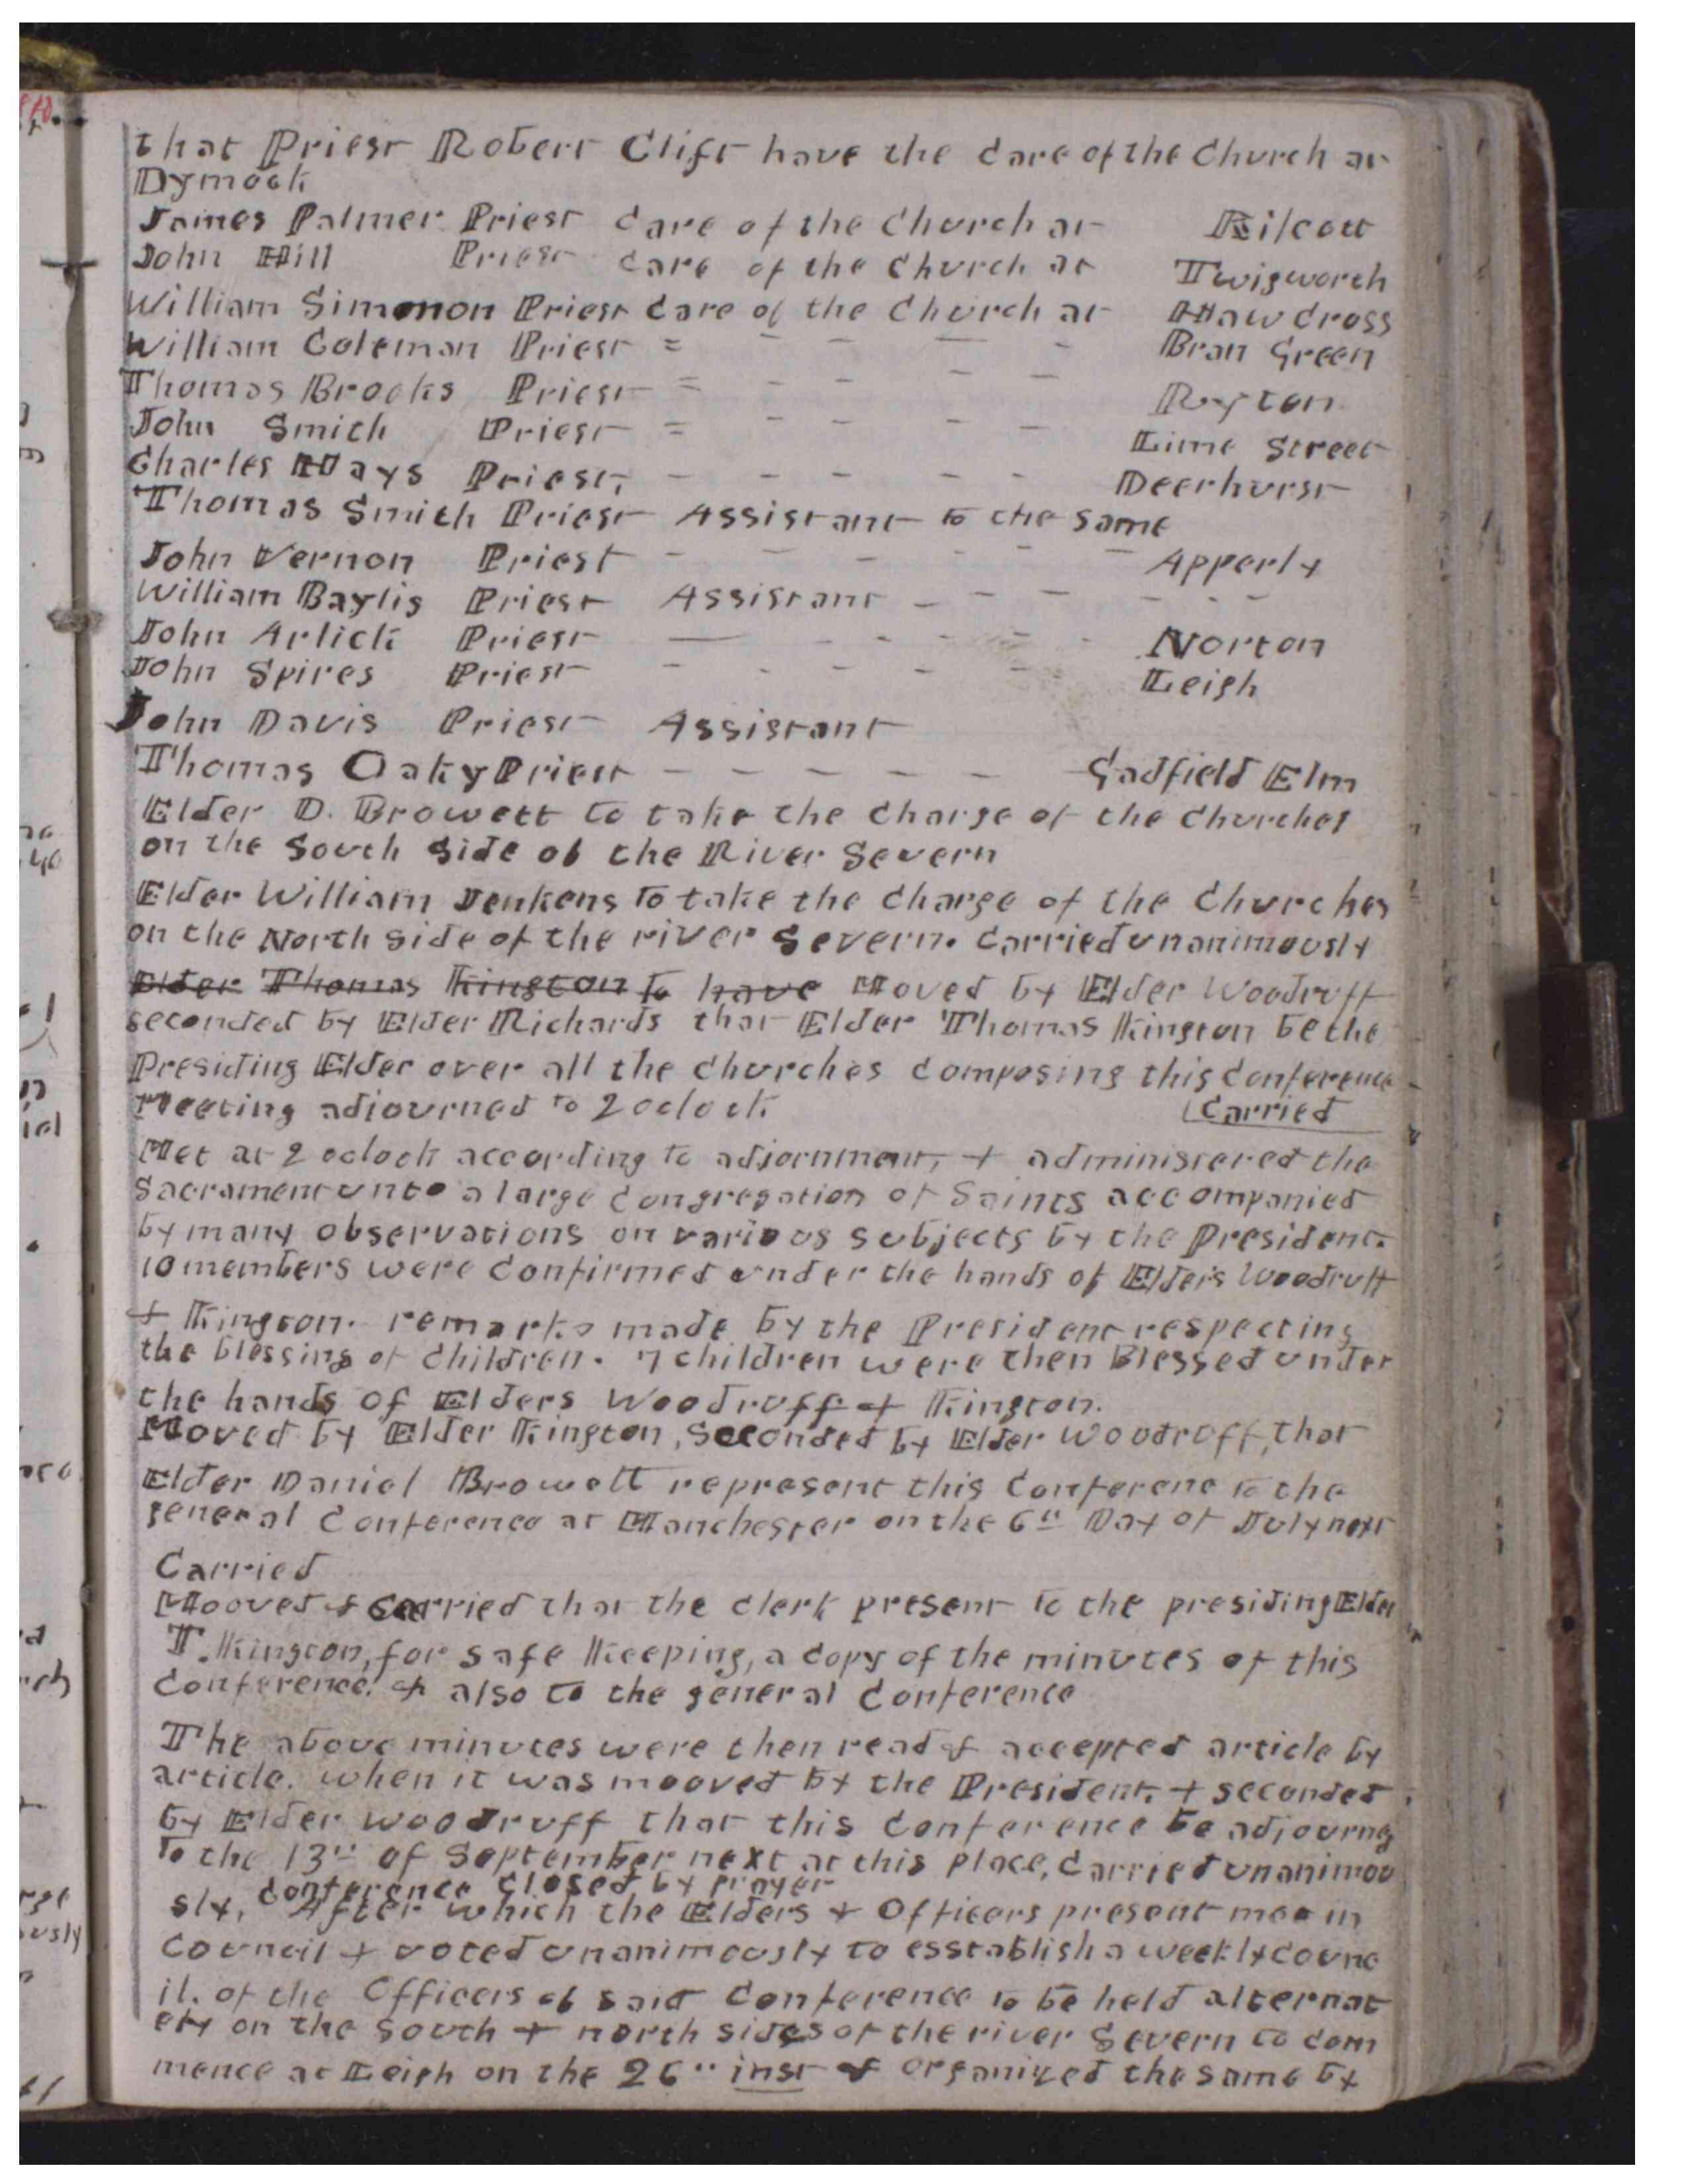 that Priest Robert Clift have the care of the Church at
Dymock
James Palmer Priest Care of the Church at Kilcott
John Hill Priest care of the Church at Twigworth
William Simmon Priest Care of the Church at Haw Cross
William Coleman Priest = - - - - Bran Green
Thomas Brooks Priest = - - - - Ryton
John Smith Priest = - - - - Lime Street
Charles Hays Priest, - - - - - Deerhurst
Thomas Smith Priest Assistant to the same
John Vernon Priest - - - - - - Apperly
William Baylis Priest Assistant - - - - - -
John Arlick Priest - - - - - Norton
John Spires Priest - - - - - Leigh
John Davis Priest Assistant
Thomas Oaky Priest - - - - - - Gadfield Elm
Elder D. Browett to take the Charge of the Churches
on the South Side of the River Severn
Elder William Jenkens to take the Charge of the Churches
on the North side of the river Severn. Carried unanimously
Elder Thomas Kington to have Moved by Elder Woodruff
seconded by Elder Richards that Elder Thomas Kington be the
Presiding Elder over all the Churches Composing this Conference
Meeting adjourned to 2 oclock Carried
Met at 2 oclock according to adjornment, + administered the
Sacrament unto a large Congregation of Saints accompanied
by many observations on various subjects by the President.
10 members were Confirmed under the hands of Elders Woodruff
+ Kington. remarks made by the President respecting
the blessing of Children. 7 children were then Blessed under
the hands of Elders Woodruff + Kington.
Moved by Elder Kington, Seconded by Elder Woodruff, that
Elder Daniel Browett represent this Conferenc to the
general Conference at Manchester on the 6th Day of July next
Carried
Mooved & carried that the Clerk present to the presiding Elder
T. Kington, for safe Keeping, a Copy of the minutes of this
Conference. & also to the general Conference
The above minutes were then read & accepted article by
article. when it was mooved by the President. + seconded
by Elder Woodruff that this Conference be adjourng
to the 13th of September next at this place, Carried unanimou
Conference Closed by prayer
sly, After which the Elders + Officers present met in
Council + voted unanimously to esstablish a weekly counc
il. of the Officers of said Conference to be held alternat
ely on the South + north sides of the river Severn to com
mence at Leigh on the 26th inst & organized the same by